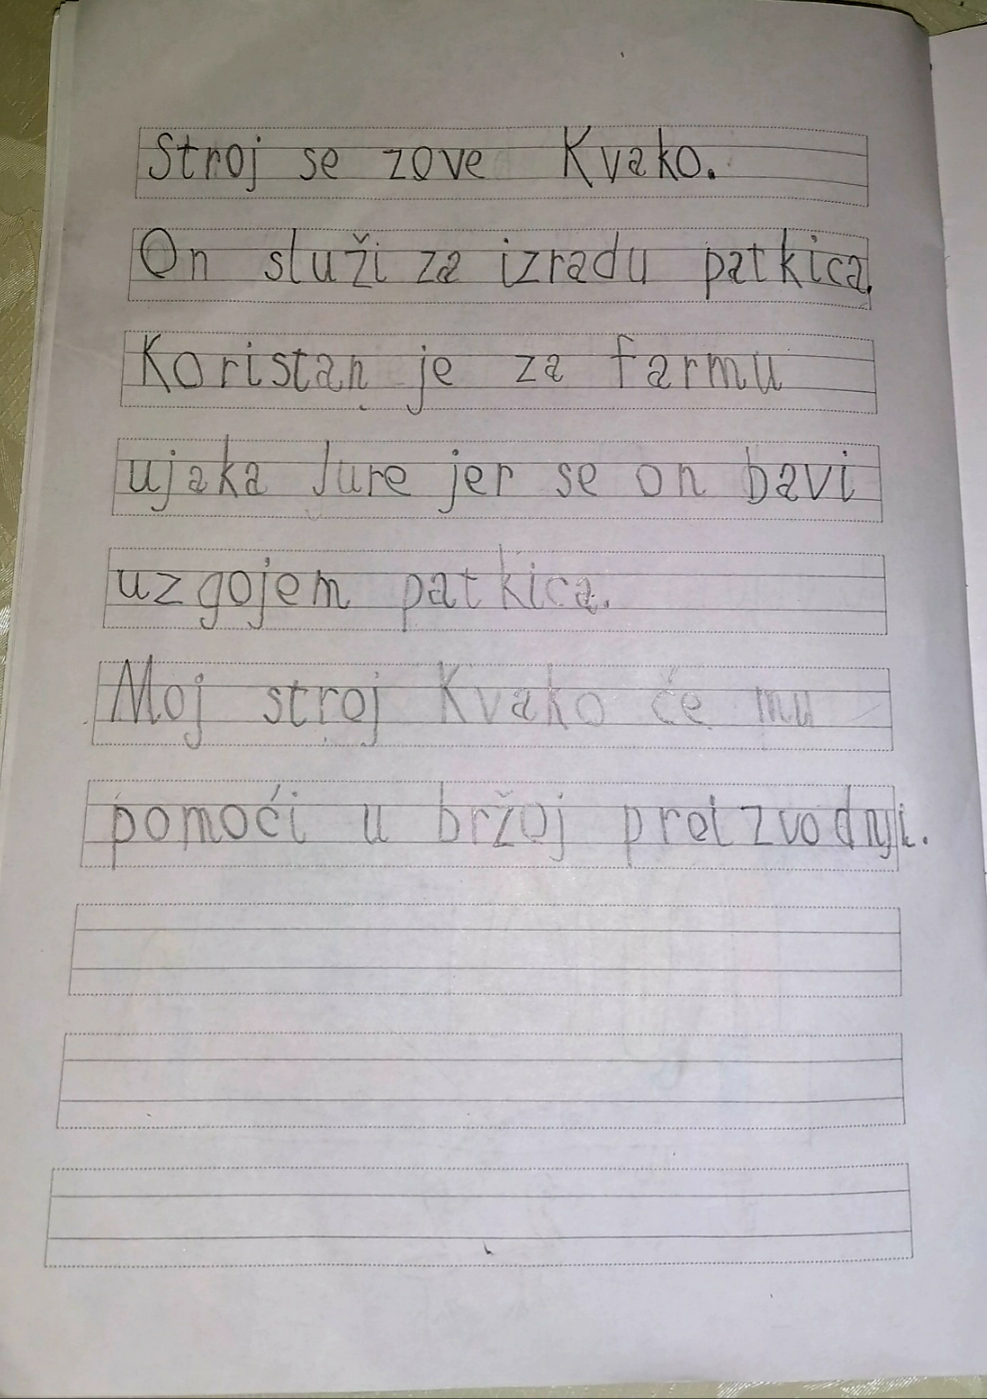 Stroj se zove Kvako.
On služi za izradu patkica.
Koristan je za farmu
ujaka Jure jer se on bavi
uzgojem patkica.
Moj stroj Kvako će mu
pomoći u bržoj preizvodnji.